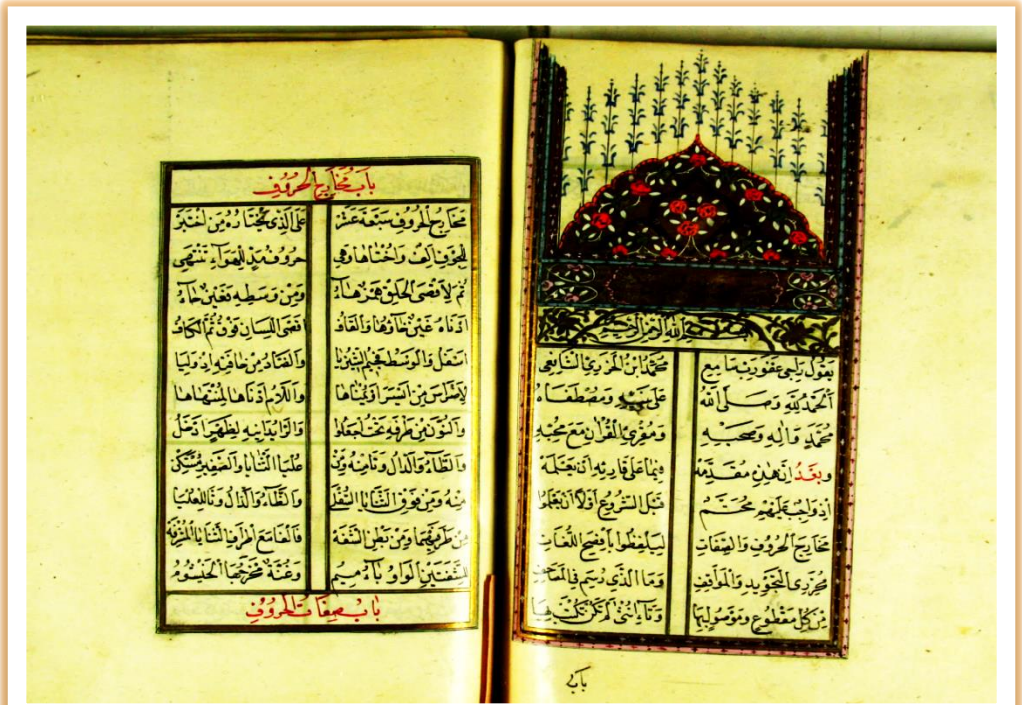 بسم الله الرحمن الرحيم
يقول راجي عفو رب سامع محمد ابن الجزري الشافعي
الحمد لله وصلى الله على نبيه ومصطفاه
محمد واله وصحبه ومقرئ القران مع محبه
وبعد ان هذه مقدمه فيما على قارئه ان يعلمه
اذ واجب عليهم محتم قبل الشروع اولا ان يعلموا
مخارج الحروف والصفات ليلفظوا بافصح اللغات
محرري التجويد والمواقف وما الذي رسم في المصاحف
من كل مقطوع وموصول بها وتاء انثى لم تكن تكتب بها
باب
باب مخارج الحروف
مخارج الحروف سبعة عشر على الذي يختاره من اختبر
للجوف الف واختاها وهي حروف مد للهواء تنتهي
ثم لاقصى الحلق همز هاء ومن وسطه فعين حاء
ادناه غين خاؤها والقاف اقصى اللسان فوق ثم الكاف
اسفل والوسط فجيم الشين يا والضاد من حافته اذ وليا
لاضراس من ايسر او يمناها واللام ادناها لمنتهاها
والنون من طرفه تحت اجعلوا والرا يدانيه لظهر ادخل
والطاء والدال وتا منه ومن عليا الثنايا والصفير مستكن
منه ومن فوق الثنايا السفلى والظاء والذال وثا للعليا
من طرفيهما ومن بطن الشفه فالفا مع اطراف الثنايا المشرفه
للشفتين الواو باء ميم وغنة مخرجها الخيشوم
باب صفات الحروف